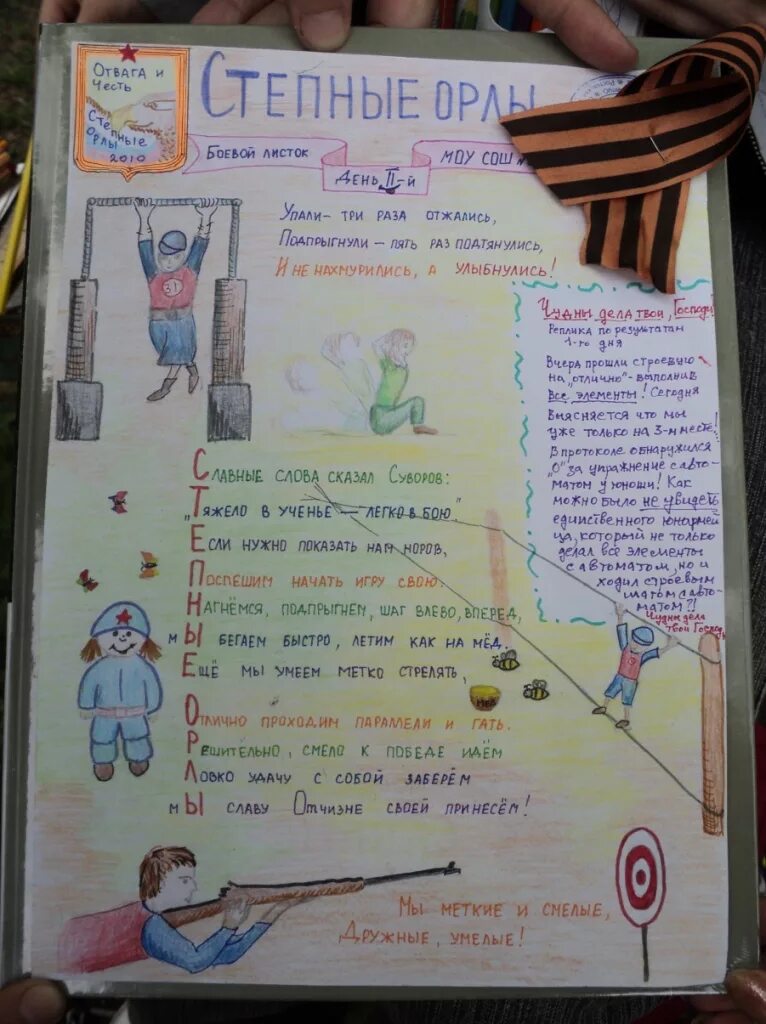 Отвага и
Честь
Степные
Орлы
2010
Степные орлы
Боевой листок
День II-й
МОУ СОШ
Упали – три раза отжались,
Подпрыгнули – пять раз подтянулись,
И не нахмурились, а улыбнулись!
31
Чудны дела твои, Господи!
Реплика по результатам
1-го дня
Вчера прошли строевую
на „отлично"- выполнив
все элементы! Сегодня
выясняется что мы
уже только на 3-м месте!
В протоколе обнаружился
„0" за упражнение с авто-
матом у юноши! Как
можно было не увидеть
единственного юнармей
ца, который не только
делал все элементы
с автоматом, но и
ходил строевым
шагом с авто-
матом?!
Чудны дела
твои Господь
Славные слова сказал Суворов:
„Тяжело в ученье – легко в бою."
Если нужно показать нам норов,
Поспешим начать игру свою.
Нагнёмся, подпрыгнем, шаг влево, вперед,
мЫ бегаем быстро, летим как на мёд.
Ещё мы умеем метко стрелять,
Отлично проходим параллели и гать.
Решительно, смело к победе идём
Ловко удачу с собой заберём
мЫ славу Отчизне своей принесём!
мёд
Мы меткие и смелые,
Дружные, умелые!